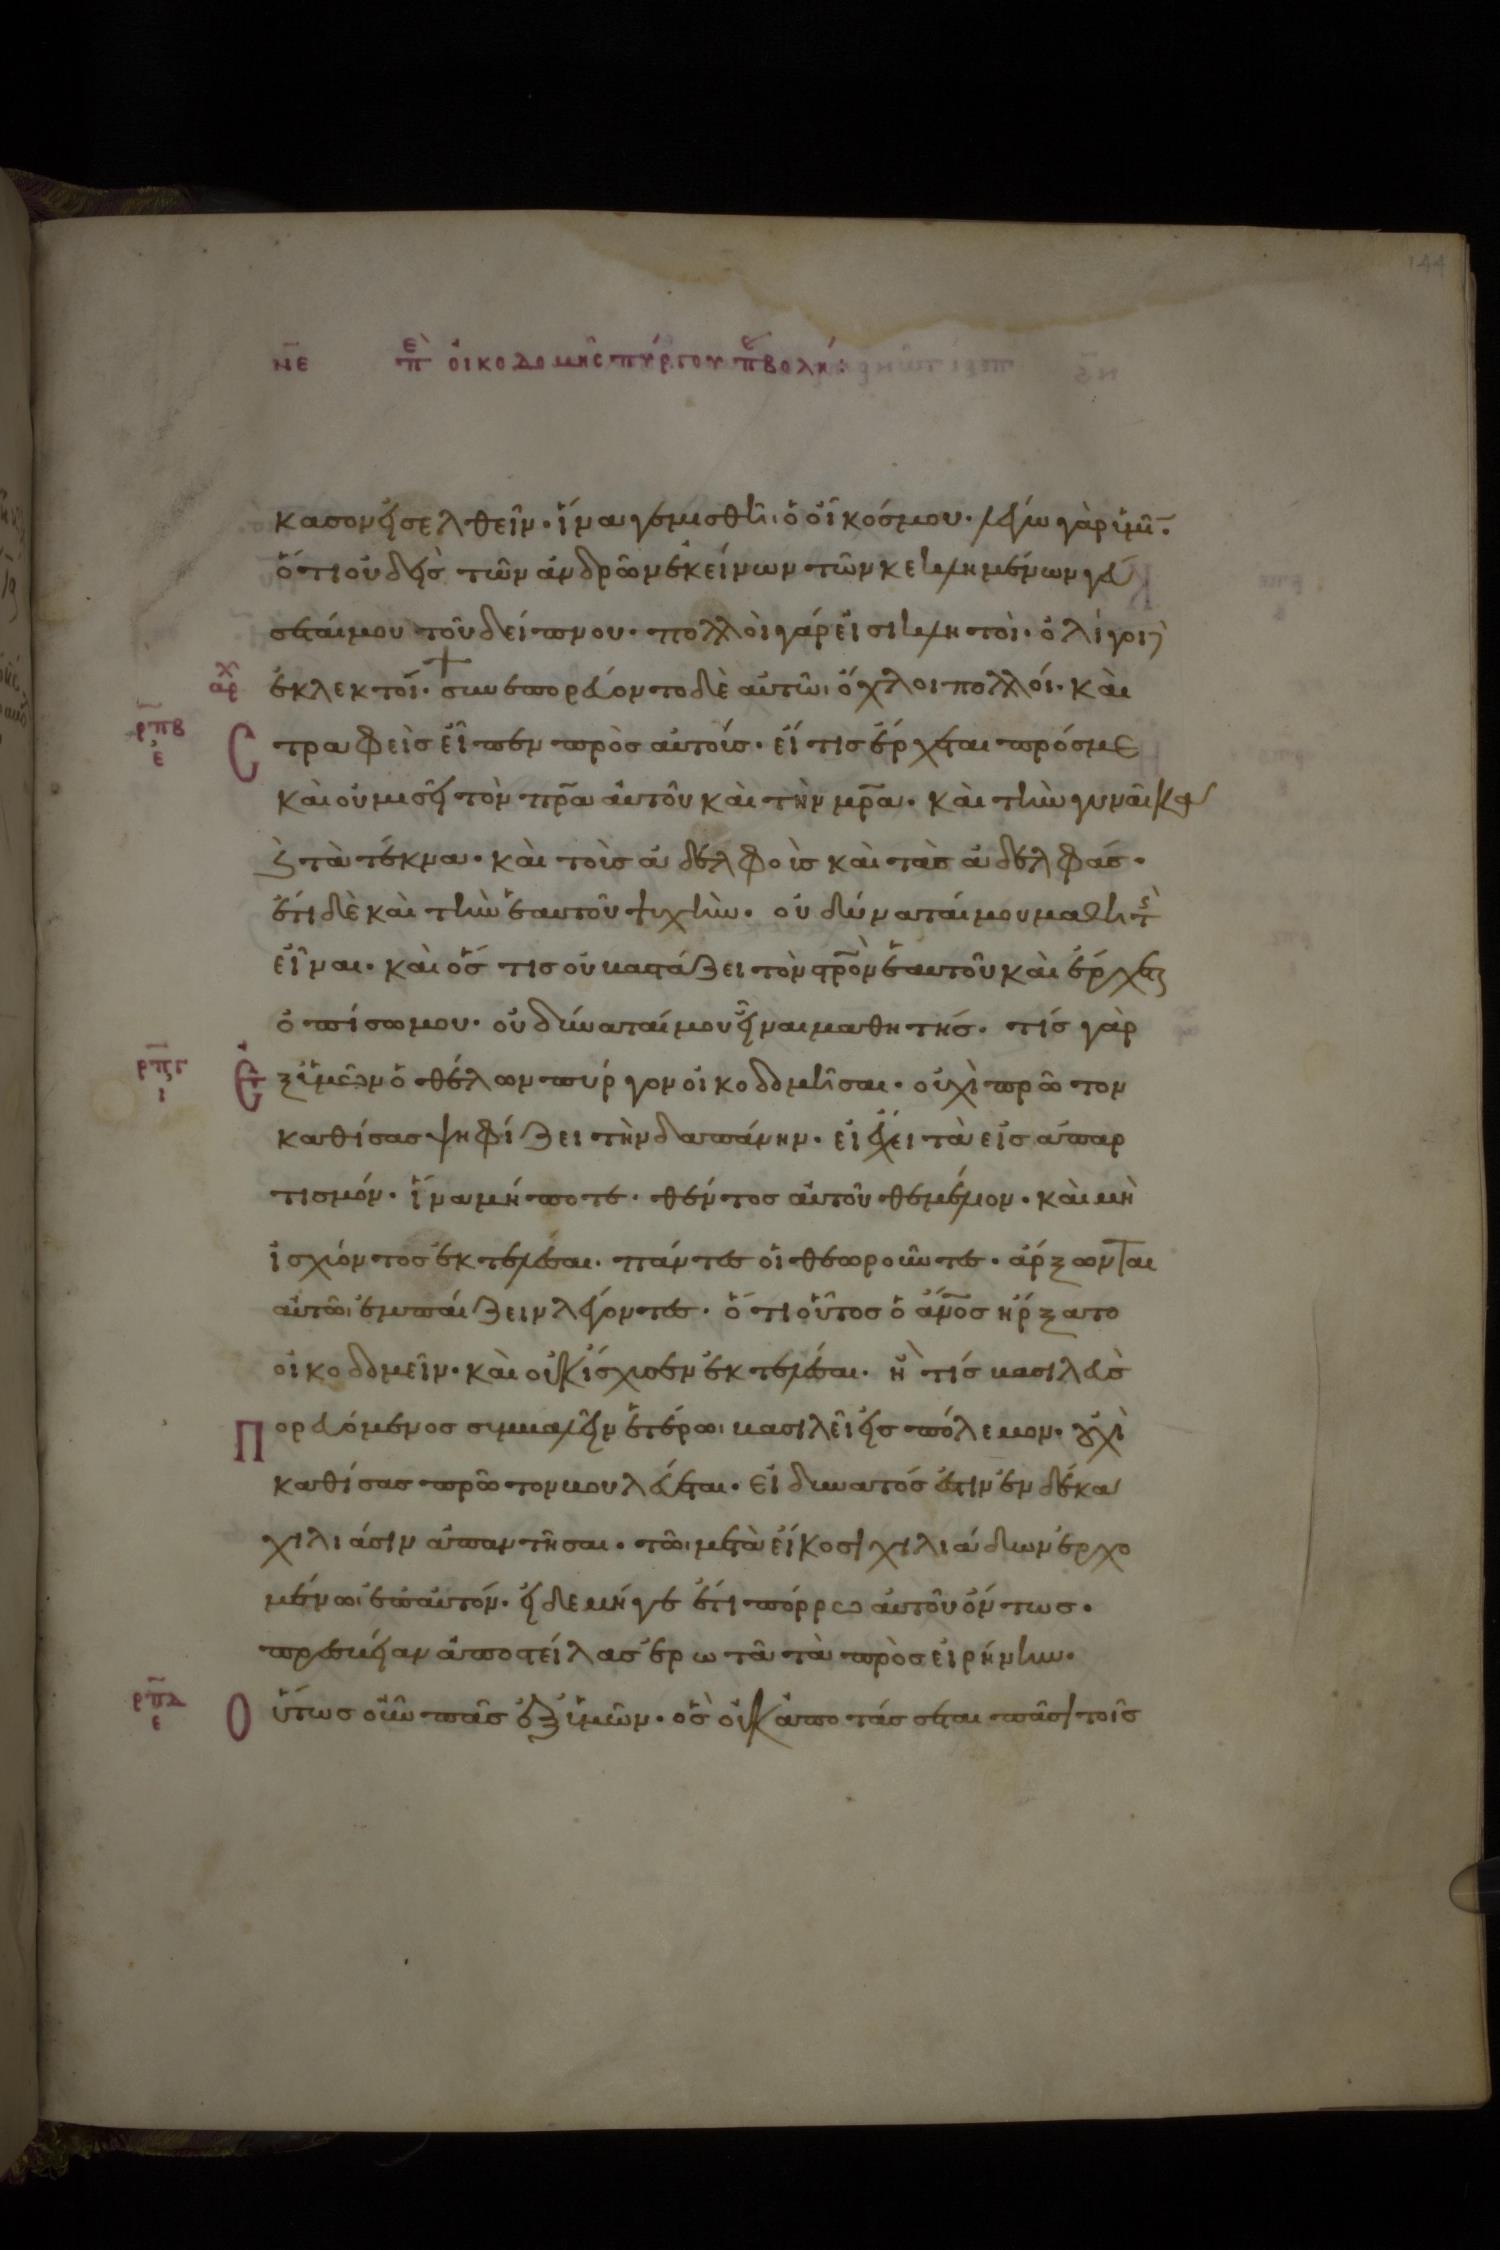 144
νε περὶ οἰκοδομῆς πύργου πβολή:
κασον εἰσελθεῖν· ἵνα γεμισθῆι ὁ οἶκόσ μου· λέγω γὰρ ὑμῖν·
ὅτι οὐδεὶσ τῶν ἀνδρῶν ἐκείνων τῶν κεκλημένων γεύ
σεταί μου τοῦ δείπνου· πολλοὶ γάρ εἰσι κλητοὶ· ὀλίγοι δὲ
χ̑ αρ ἐκλεκτοί· συνεπορεύοντο δὲ αὐτῶι ὄχλοι πολλοί· καὶ
ρπβ ε Στραφεὶσ εἶπεν πρὸσ αὐτούσ· εἴ τισ ἔρχεται πρόσ με
καὶ οὐ μισεῖ τὸν πρ̅α αὐτοῦ καὶ τὴν μρ̅α· καὶ τὴν γυναῖκα
καὶ τὰ τέκνα· καὶ τοὺσ ἀδελφοὺσ καὶ τὰσ ἀδελφάσ·
ἔτι δὲ καὶ τὴν ἑαυτοῦ ψυχὴν· οὐ δύναταί μου μαθητὴσ
εἶναι· καὶ ὅσ τισ οὐ βαστάζει τὸν στρ̅ον ἑαυτοῦ καὶ ἔρχεται
ὀπίσω μου· οὐ δύναταί μου εἶναι μαθητήσ· τίσ γὰρ
ρπγ ι Ἐξ ὑμῶν ὁ θέλων πύργον οἰκοδομῆσαι· οὐχὶ πρῶτον
καθίσασ ψηφίζει τὴν δαπάνην· εἰ ἔχει τὰ εἰσ ἀπαρ
τισμόν· ἵνα μήποτε· θέντοσ αὐτοῦ θεμέλιον· καὶ μὴ
ἰσχύοντοσ ἐκτελέσαι· πάντεσ οἱ θεωροῦντεσ· ἄρξωνται
αὐτῶι ἐμπαίζειν λέγοντεσ· ὅτι οὗτοσ ὁ ἄν̅οσ ἤρξατο
οἰκοδομεῖν· καὶ οὐκ ἴσχυσεν ἐκτελέσαι· ἢ τίσ βασιλεὺσ
Πορευόμενοσ συμβαλεῖν ἑτέρωι βασιλεῖ εἰσ πόλεμον· οὐχὶ
καθίσασ πρῶτον βουλεύεται· εἰ δυνατόσ ἐστιν ἐν δέκα
χιλιάσιν ἀπαντῆσαι· τῶι μετὰ εἴκοσι χιλιάδων ἐρχο
μένωι ἐπ αὐτόν· εἰ δε μήγε ἔτι πόρρω αὐτοῦ ὄντωσ·
πρεσβείαν ἀποστείλασ ἐρωτᾶ τὰ πρὸσ εἰρήνην·
ρπδ ε Οὕτωσ οὖν πᾶσ ἐξ ὑμῶν· ὃσ οὐκ ἀποτάσσεται πᾶσι τοῖσ